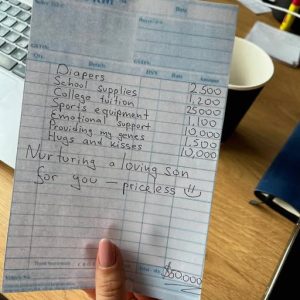 Date
Details
Rate
Amount
Diapers 2,500
School supplies 1,200
College tuition 25000
Sports equipment 1,100
Emotional support 10,000
Providing my genes 1,500
Hugs and kisses 10,000
Nurturing a loving son
for you — priceless